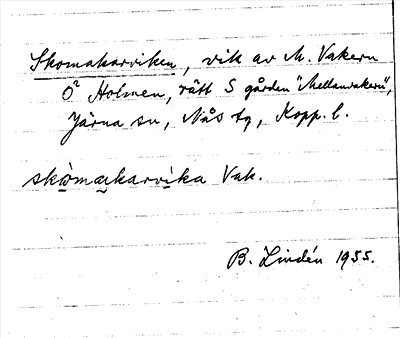 Skomakarviken, vik av M. Vakern
O² Holmen, rätt S gården "Mellanvakern",
Järna sn, Nås tg, Kopp. l.
skòmakarvìka Vak.
B. Lindén 1955.